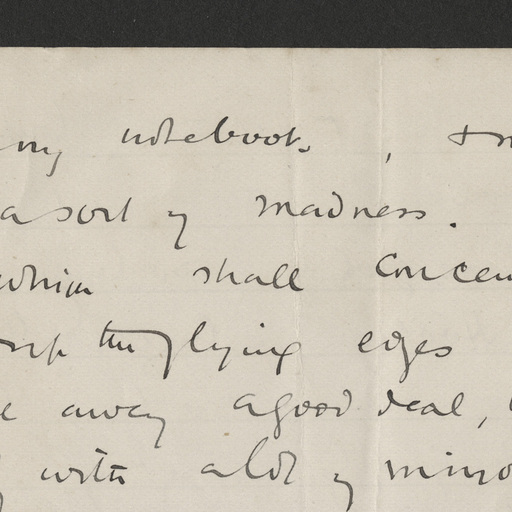 my notebook, &
a sort of madness.
which shall concen
up the flying edges
away a good deal,
with a lot of mino